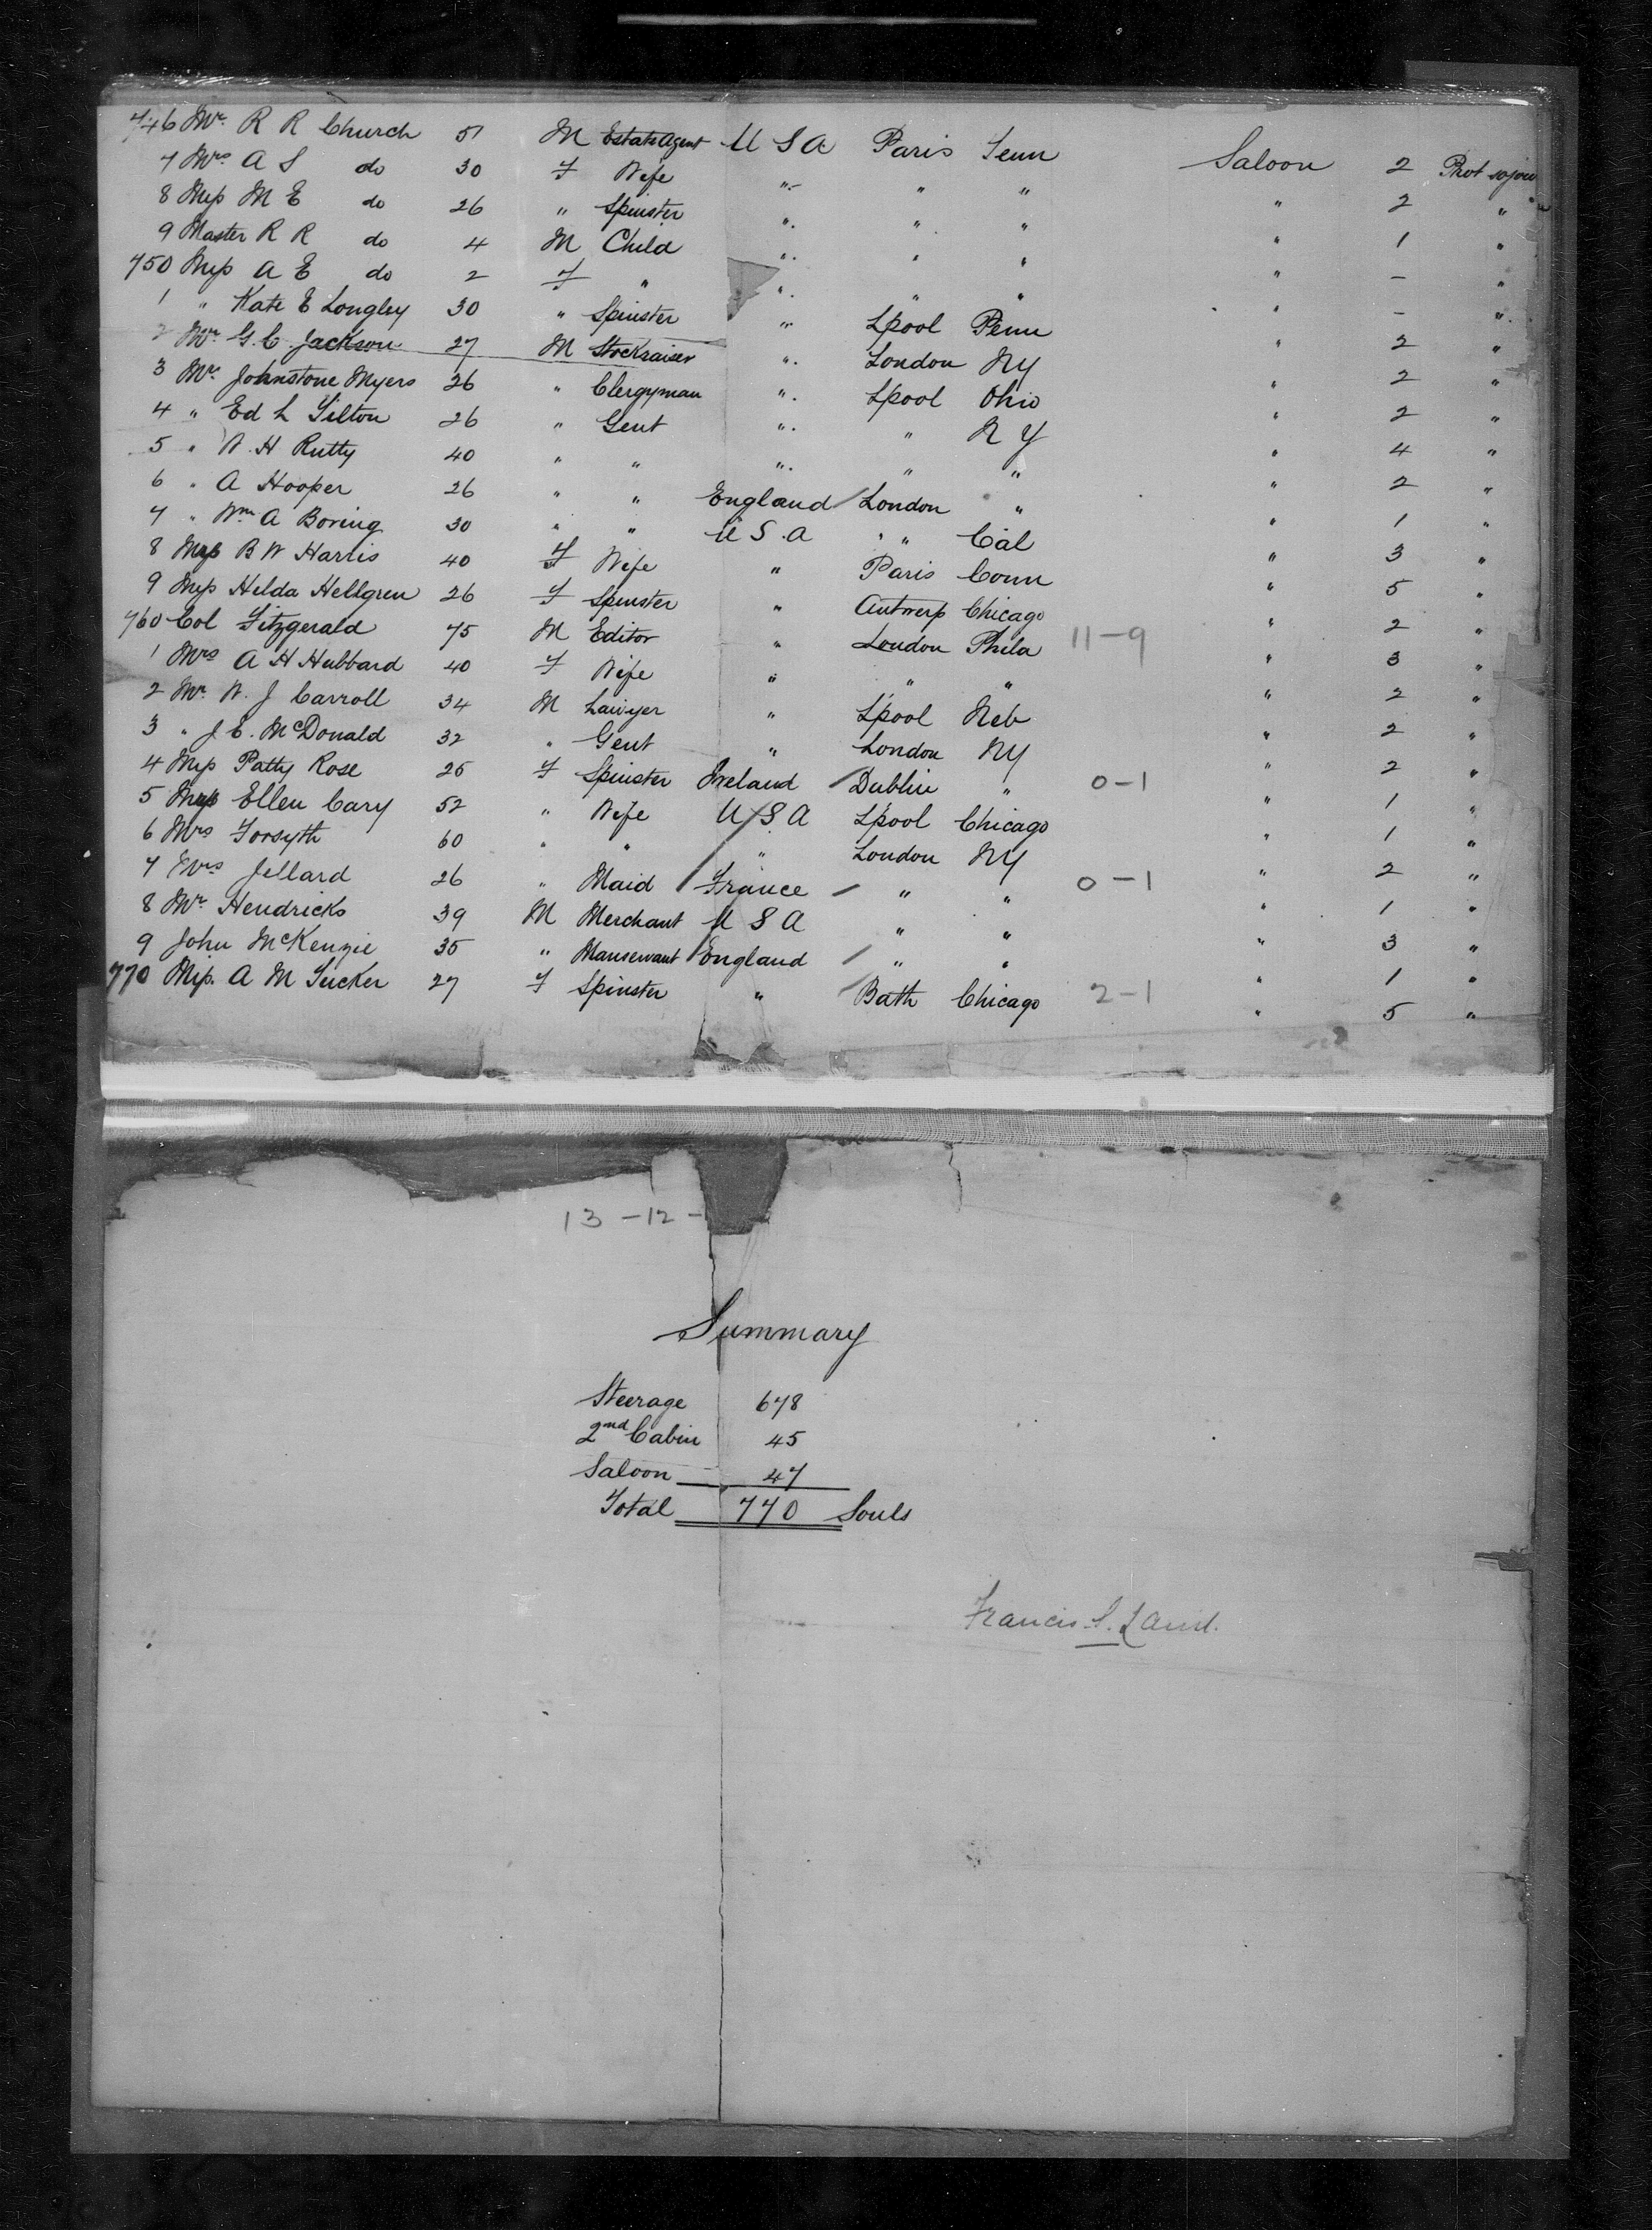 746 Mr. R R Church 51 M Estate Agent U S A Paris Tenn Saloon 2 Prot sojou
7 Mrs A S do 30 F Wife " " " " 2 "
8 Miss M E do 26 " Spinster " " " " 1 "
9 Master R R do 4 M Child " " " " – "
750 Miss A E do 2 F " " " " " – "
1 " Kate E Longley 30 " Spinster " Lpool Penn " 2 "
2 Mr. G. C. Jackson 27 M Stockraiser " London NY " 2 "
3 Mr. Johnstone Myers 26 " Clergyman " Lpool Ohio " 2 "
4 " Ed L Tilton 26 " Gent " " N Y " 4 "
5 " W. H Rutty 40 " " " " " " 2 "
6 " A Hooper 26 " " England London " " 1 "
7 " Wm A Boring 30 " " U S. A " Cal " 3 "
8 Mrs B W Harris 40 F Wife " Paris Conn " 5 "
9 Miss Hilda Hellgren 26 F Spinster " Antwerp Chicago " 2 "
760 Col Fitzgerald 75 M Editor " London Phila 11-9 " 3 "
1 Mrs A H Hubbard 40 F Wife " " " " 2 "
2 Mr. W. J Carroll 34 M Lawyer " Lpool Neb " 2 "
3 " J. E. McDonald 32 " Gent " London NY " 2 "
4 Miss Patty Rose 25 F Spinster Ireland Dublin " 0-1 " 1 "
5 Ellen Cary 52 " Wife U S A Lpool Chicago " 1 "
6 Mrs Forsyth 60 " " " London NY " 2 "
7 Mrs Jellard 26 " Maid France " " 0-1 " 1 "
8 Mr. Hendricks 39 M Merchant U S A " " " 3 "
9 John McKenzie 35 " Manservant England " " " 1 "
770 Miss. A M Tucker 27 F Spinster " Bath Chicago 2-1 " 5 "
13-12-
Summary
Steerage 678
2nd Cabin 45
Saloon 47
Total 770 Souls
Francis S.